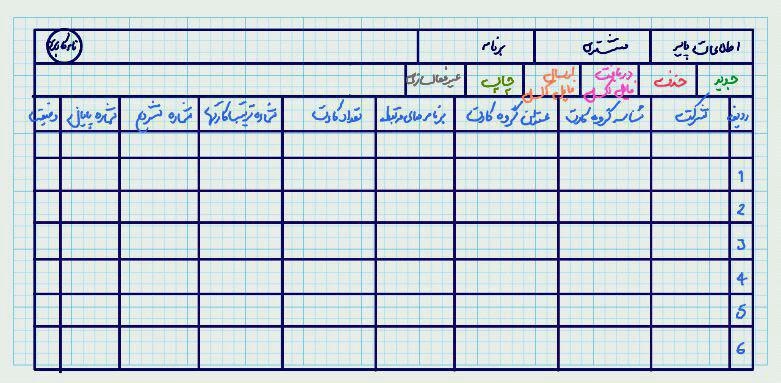 اطلاعات پایه مشتری برنامه نام کاربری
جدید حذف دریافت فایل اکسل ارسال فایل اکسل چاپ غیرفعالسازی
ردیف شرکت شناسه گروه کارت عنوان گروه کارت برنامه های مرتبط تعداد کارت شماره ترتیب کارتها شماره شروع شماره پایانی وضعیت
1
2
3
4
5
6